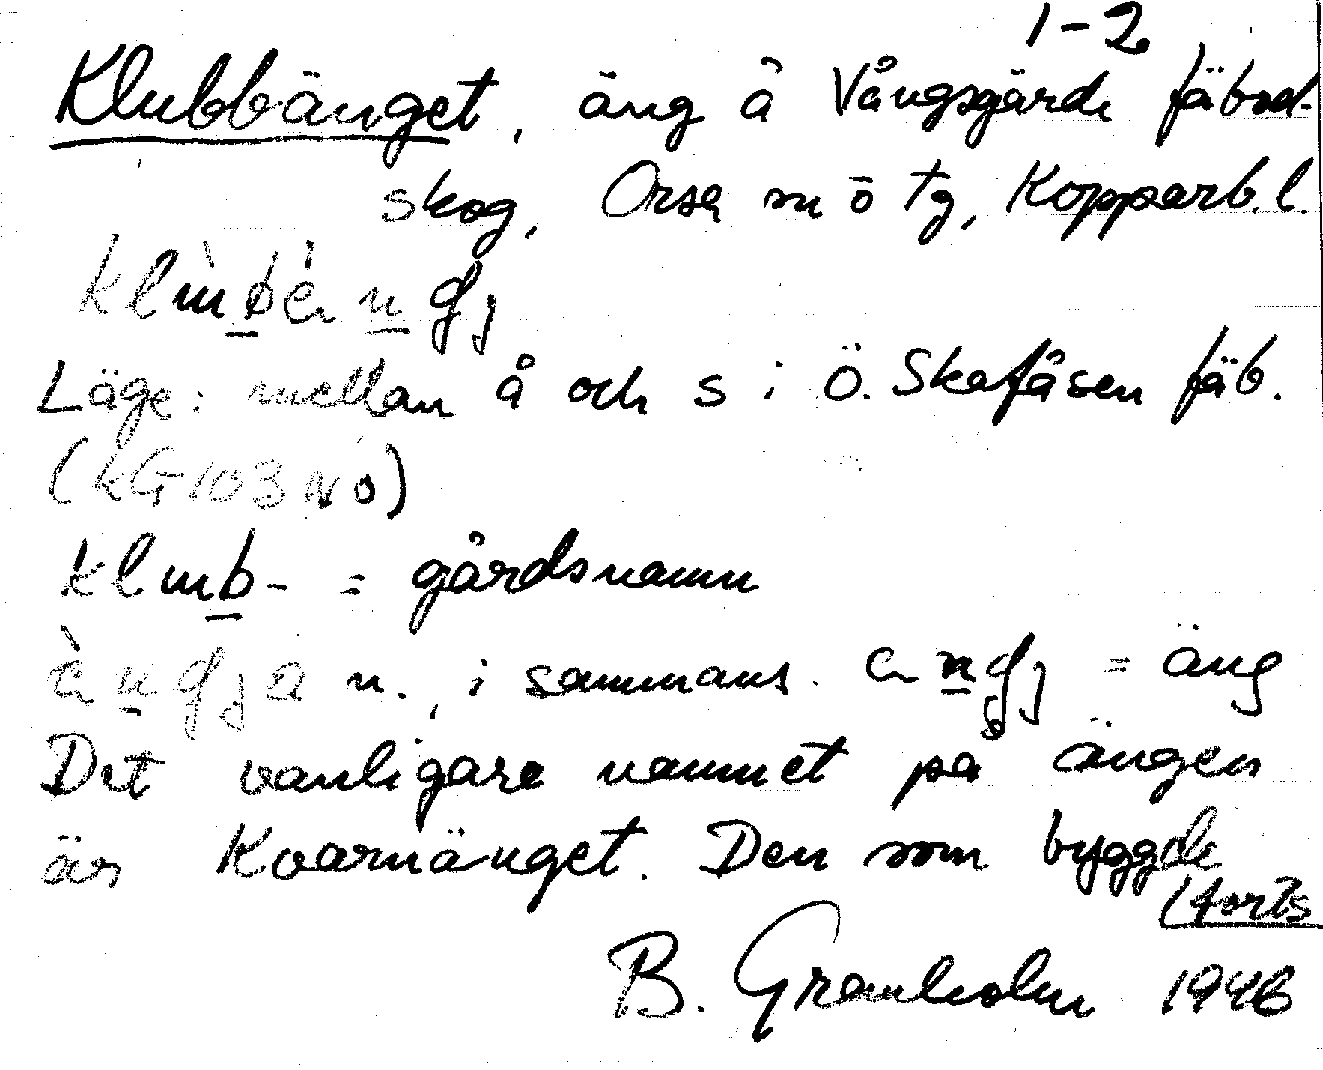 1-2
Klubbänget, äng å Vångsgärde fäbod-
skog, Orsa sn ö tg, Kopparb. l.
Läge: mellan å och s i Ö. Skafåsen fäb.
(kG 103 NO)
= gårdsnamn
n., i sammans. = äng
Det vanligare namnet på ängen
är Kvarnänget. Den som byggde
(forts
B. Gramholm 1946